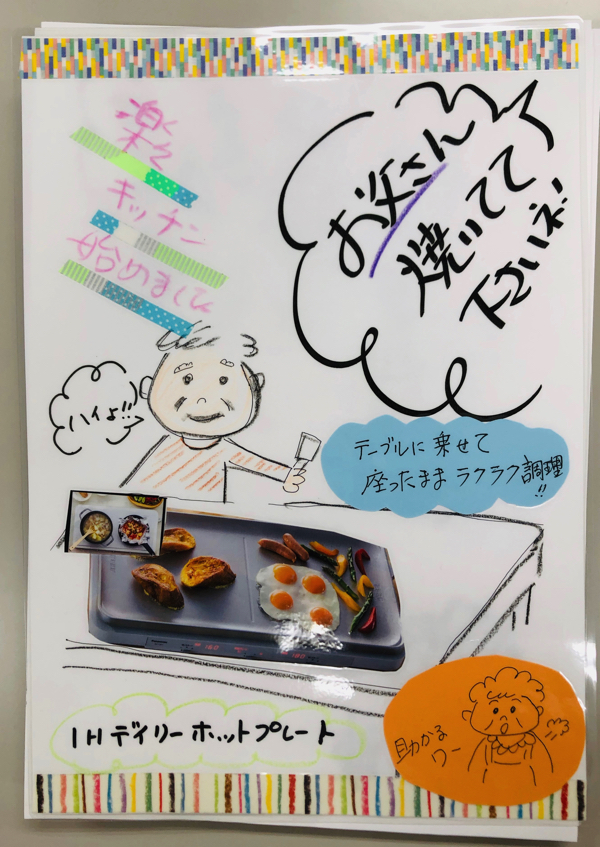 楽々
キッチン
始めまして
お父さん
焼いてて
下さいネ!
ハイよ!!
テーブルに乗せて
座ったままラクラク調理!!
IHデイリーホットプレート
助かる
ワー